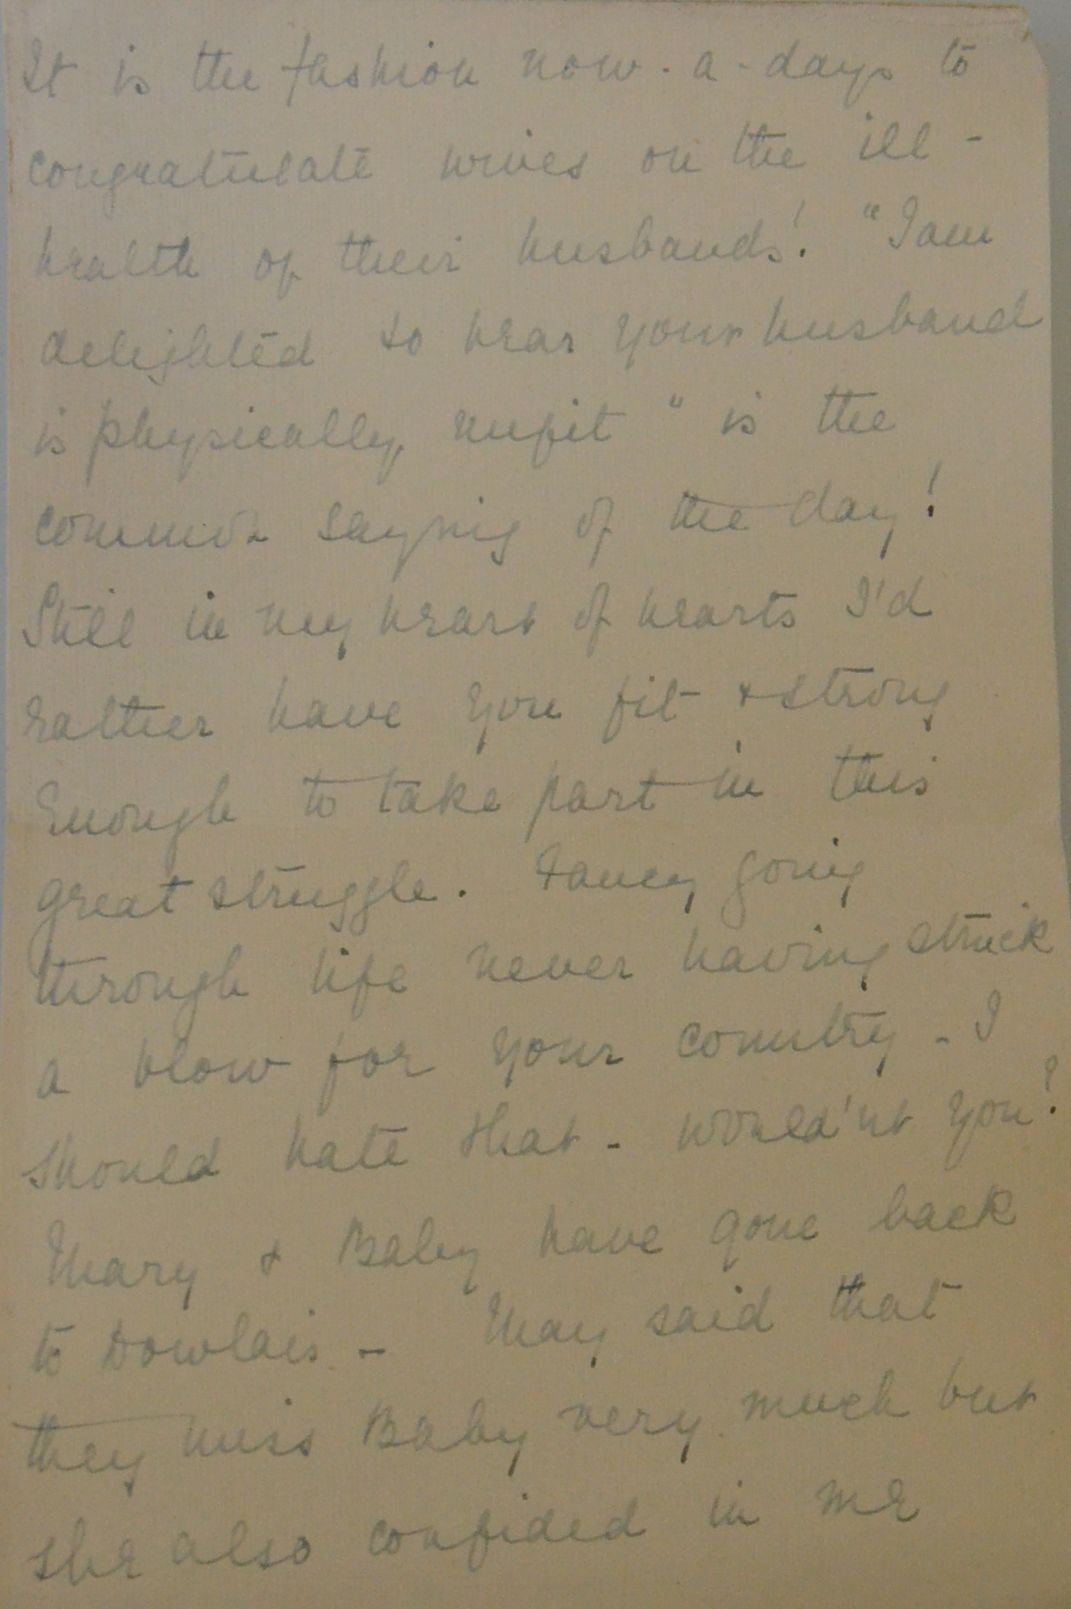 It is the fashion now-a-days to
congratulate wives on the ill-
health of their husbands! "I am
delighted to hear your husband
is physically unfit" is the
common saying of the day!
Still in my heart of hearts I'd
rather have you fit & strong
enough to take part in this
great struggle. Fancy going
through life never having struck
a blow for your country - I
should hate that - would'nt you?
Mary & Baby have gone back
to Dowlais - May said that
they miss Baby very much but
she also confided in me